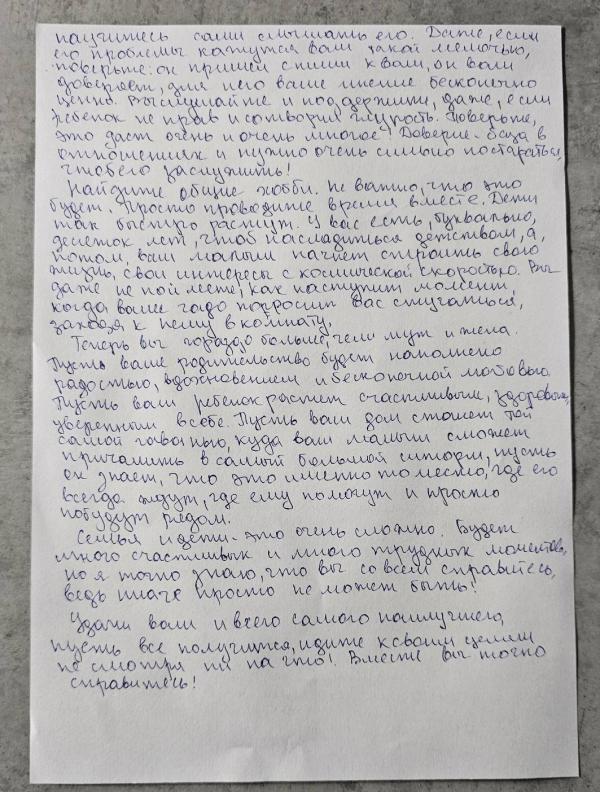 научитесь сами слышать его. Даже, если
его проблемы кажутся вам такой мелочью,
поверьте: он пришёл с ними к вам, он вам
доверяет, для него ваше мнение бесконечно
ценно. Выслушайте и поддержите, даже, если
ребенок не прав и сотворил глупость. Поверьте,
это даст очень и очень многое! Доверие - база в
отношениях и нужно очень сильно постараться,
чтоб его заслужить!
Найдите общие хобби. Не важно, что это
будет. Просто проводите время вместе. Дети
так быстро растут. У вас есть, буквально,
десяток лет, чтоб насладиться детством, а,
потом, ваш малыш начнет строить свою
жизнь, свои интересы с космической скоростью. Вы
даже не поймете, как наступит момент,
когда ваше чадо попросит вас стучаться,
заходя к нему в комнату.
Теперь вы гораздо больше, чем муж и жена.
Пусть ваше родительство будет наполнено
радостью, вдохновением и бесконечной любовью.
Пусть ваш ребенок растет счастливым, здоровым,
уверенным в себе. Пусть ваш дом станет той
самой гаванью, куда ваш малыш сможет
причалить в самый большой шторм, пусть
он знает, что это именно то место, где его
всегда ждут, где ему помогут и просто
побудут рядом.
Семья и дети - это очень сложно. Будет
много счастливых и много трудных моментов,
но я точно знаю, что вы со всем справитесь,
ведь иначе просто не может быть!
Удачи вам и всего самого наилучшего,
пусть все получится, идите к своим целям
не смотря ни на что! Вместе вы точно
справитесь!